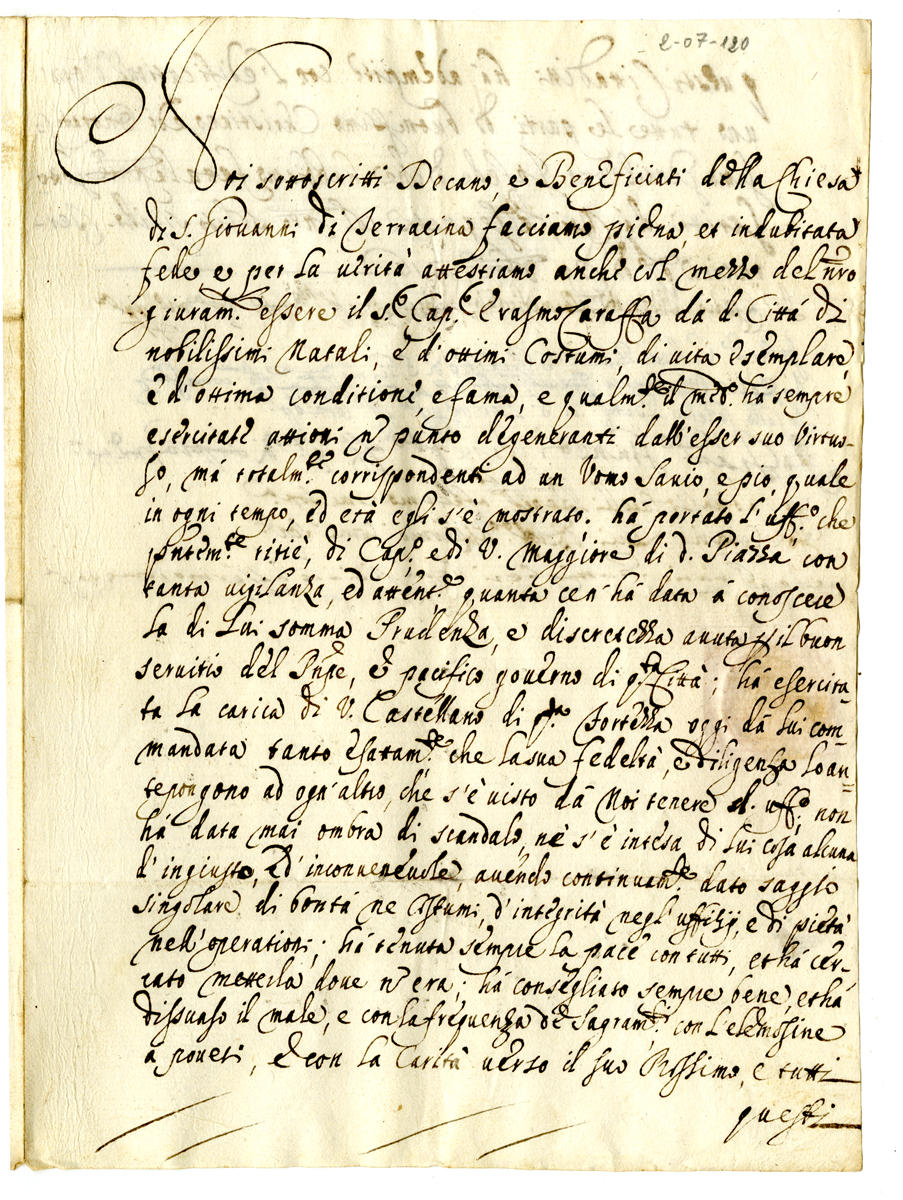 2-07-120
Noi sottoscritti Decano, e Beneficiati della Chiesa
di S. Giovanni di Terracina facciamo piena, et indubitata
fede e per la verità attestiamo anche col mezzo del nro
giuram.to essere il s.r Cap.n Erasmo Caraffa dà d. Città di
nobilissimi Natali, è d'ottimi Costumi, di vita esemplare,
è d'ottima conditione, e fama, e qualm.te il med.o hà sempre
esercitate attioni nõ punto degeneranti dall'esser suo Virtuo-
so, mà totalm.te corrispondenti ad un Vomo Savio, e pio, quale
in ogni tempo, ed età egli s'è mostrato. hà portato l'uff.o che
pntem.te ritiè, di Cap.o e di V. Maggiore di d. Piazza con
tanta vigilanza, ed attent.e quanta cen'hà data à conoscere
la di lui somma Prudenza, e discretezza avuta p il buon
servitio del Pnpe, è pacifico governo di q.sta Città; hà esercita-
ta la carica di V. Castellano di q.sta Fortezza oggi dà lui com-
mandata tanto esatam.te che la sua fedeltà, è diligenza lo an-
tepongono ad ogn'altro, che s'è visto dà Noi tenere d. uff.o; non
hà data mai ombra di scandalo, nè s'è intesa di lui cosa alcuna
d'ingiusto, ed'inconvenevole, avendo continuam.te dato saggio
singolare di bontà ne Costumi, d'integrità negl'uffizij, e di pietà
nell'operationi; hà tenuta sempre la pace con tutti, et hà cer-
cato metterla dove nõ era; hà consegliato sempre bene, et hà
dissuaso il male, e con la frequenza de Sagram.ti con l'elemosine
a poveri, è con la Carità verso il suo Prossimo, e tutti
questi